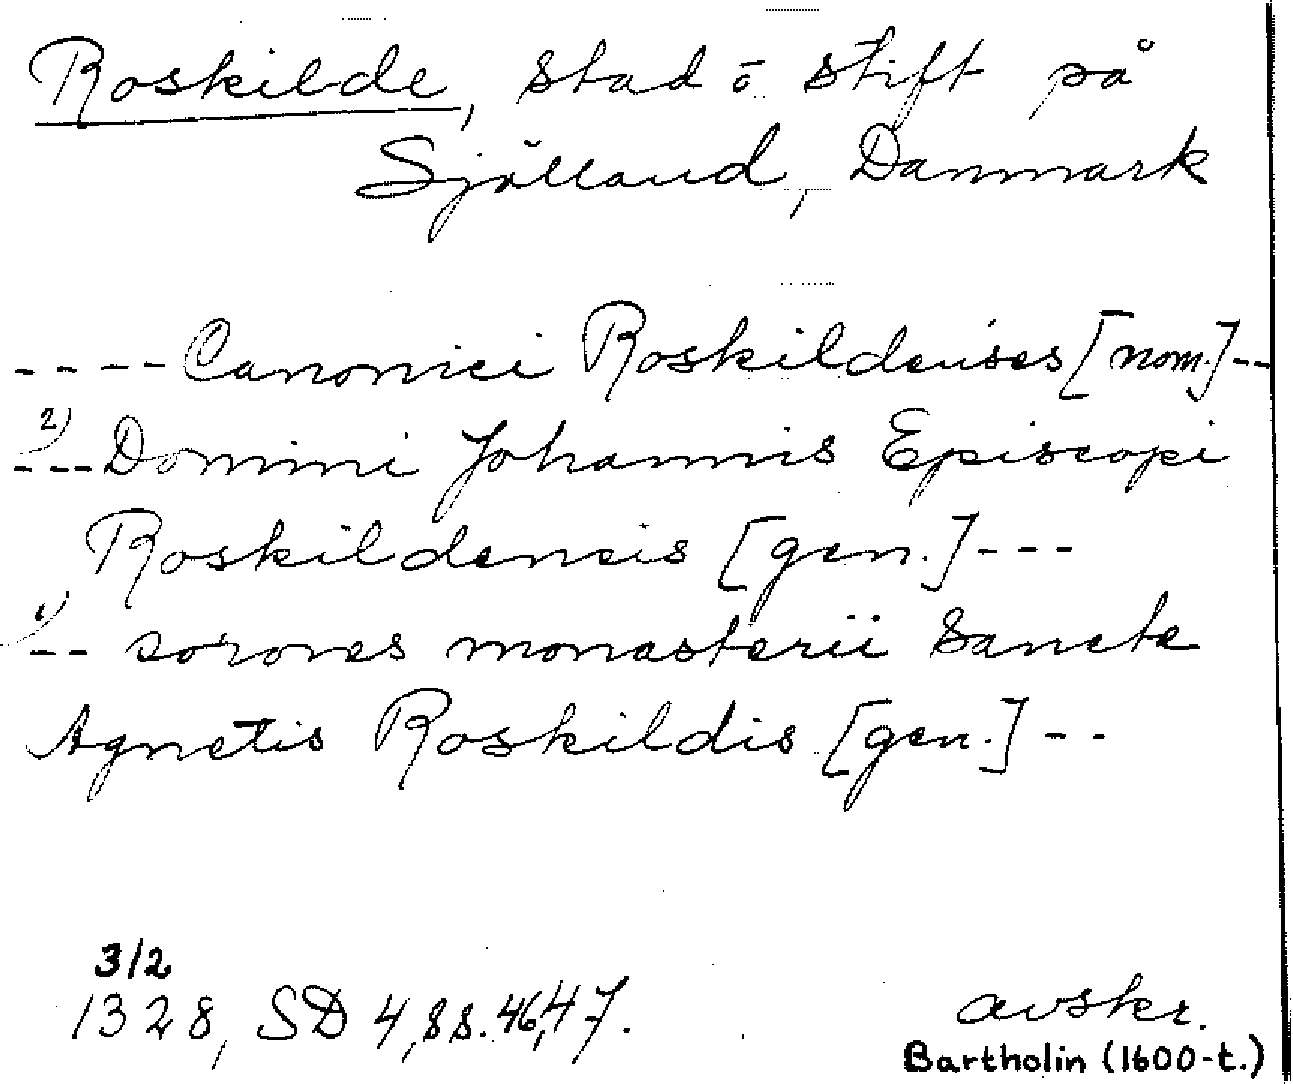 Roskilde, stad o stift på
Sjölland, Danmark
---- Canonici Roskildenses [nom.] --
2)
--- Domini Johannis Episcopi
Roskildensis [gen.] ---
1)
-- sorores monasterii Sancte
Agnetis Roskildis [gen.] --
3/2
1328, SD 4, ss. 46, 47.
avskr.
Bartholin (1600-t.)